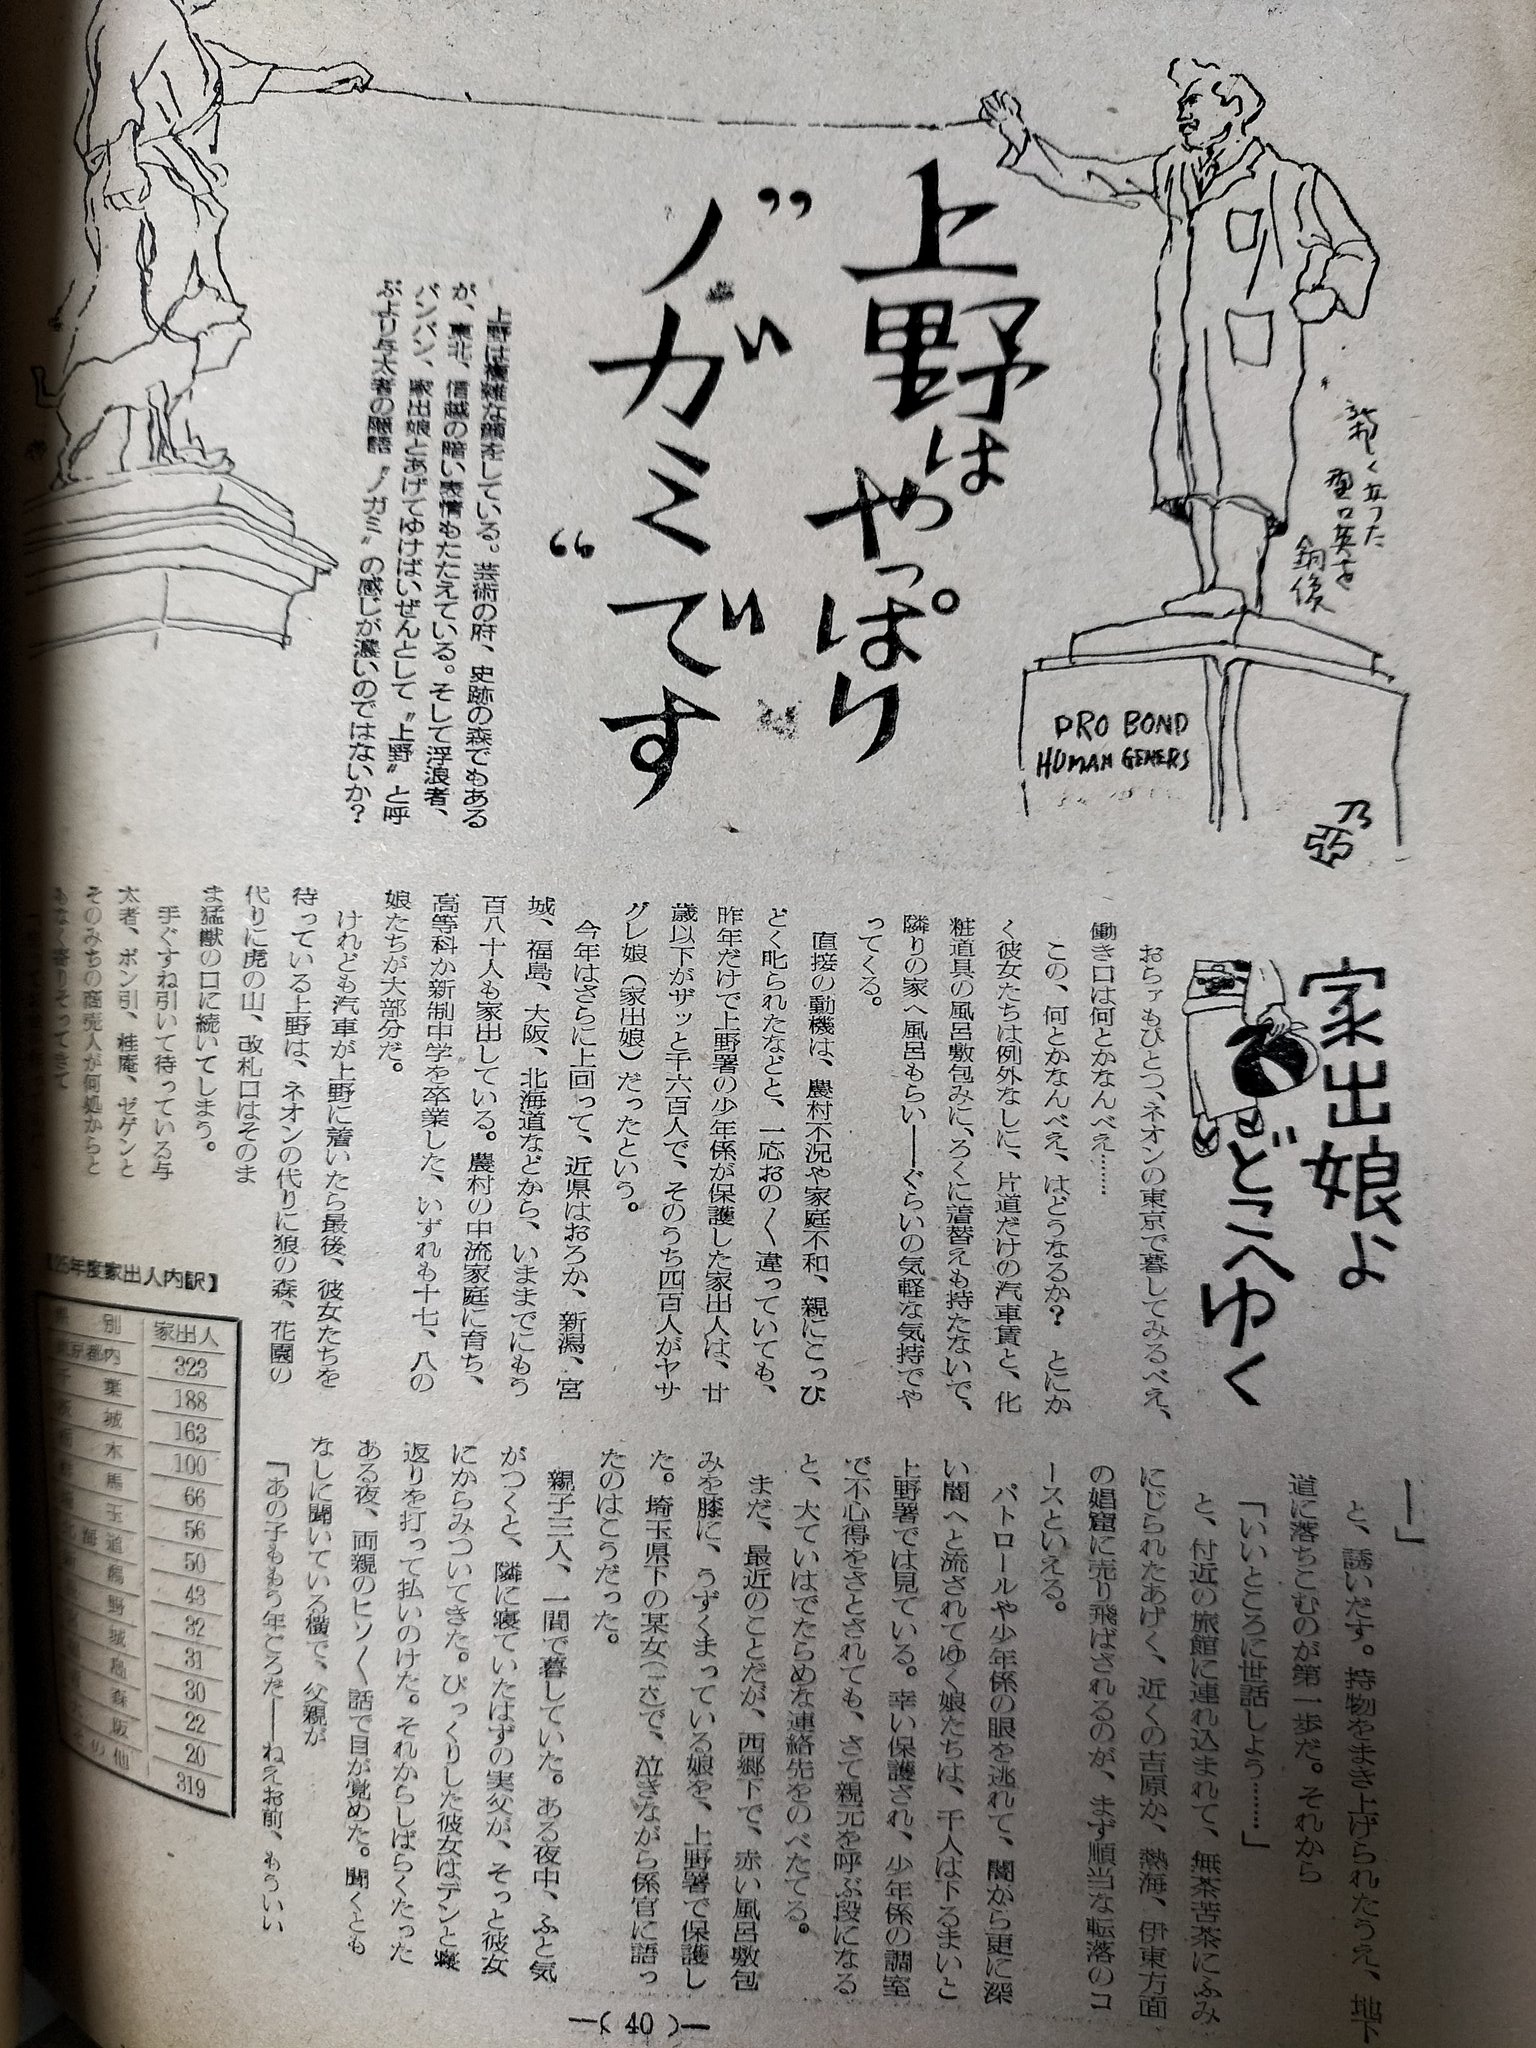 上野は やっぱり
〝ノガミ〟です
新しく立った
野口英世
銅像
PRO BOND
HUMAN GENERS
乃弥
上野は複雑な顔をしている。芸術の府、史跡の森でもある
が、東北、信越の暗い表情もたたえている。そして浮浪者、
パンパン、家出娘とあげてゆけばいぜんとして〝上野〟と呼
ぶより与太者の隠語〝ノガミ〟の感じが濃いのではないか?
家出娘よ
どこへゆく
おらァもひとつ、ネオンの東京で暮してみるべえ、
働き口は何とかなんべえ……
この、何とかなんべえ、はどうなるか? とにか
く彼女たちは例外なしに、片道だけの汽車賃と、化
粧道具の風呂敷包みに、ろくに着替えも持たないで、
隣りの家へ風呂もらい――ぐらいの気軽な気持でや
ってくる。
直接の動機は、農村不況や家庭不和、親にこっぴ
どく叱られたなどと、一応おの〱違っていても、
昨年だけで上野署の少年係が保護した家出人は、廿
歳以下がザッと千六百人で、そのうち四百人がヤサ
グレ娘(家出娘)だったという。
今年はさらに上回って、近県はおろか、新潟、宮
城、福島、大阪、北海道などから、いままでにもう
百八十人も家出している。農村の中流家庭に育ち、
高等科か新制中学を卒業した、いずれも十七、八の
娘たちが大部分だ。
けれども汽車が上野に着いたら最後、彼女たちを
待っている上野は、ネオンの代りに狼の森、花園の
代りに虎の山、改札口はそのま
ま猛獣の口に続いてしまう。
手ぐすね引いて待っている与
太者、ポン引、桂庵、ゼゲンと
そのみちの商売人が何処からと
もなく寄りそってきて
25年度家出人内訳】
別 家出人
都内 323
葉 188
城 163
木 100
馬 66
玉 56
海道 50
潟 43
野 32
城 31
島 30
森 22
阪 20
その他 319
――」
と、誘いだす。持物をまき上げられたうえ、地下
道に落ちこむのが第一歩だ。それから
「いいところに世話しよう……」
と、付近の旅館に連れ込まれて、無茶苦茶にふみ
にじられたあげく、近くの吉原か、熱海、伊東方面
の娼窟に売り飛ばされるのが、まず順当な転落のコ
ースといえる。
パトロールや少年係の眼を逃れて、闇から更に深
い闇へと流されてゆく娘たちは、千人は下るまいと
上野署では見ている。幸い保護され、少年係の調室
で不心得をさとされても、さて親元を呼ぶ段になる
と、大ていはでたらめな連絡先をのべたてる。
まだ、最近のことだが、西郷下で、赤い風呂敷包
みを膝に、うずくまっている娘を、上野署で保護し
た。埼玉県下の某女で、泣きながら係官に語っ
たのはこうだった。
親子三人、一間で暮していた。ある夜中、ふと気
がつくと、隣に寝ていたはずの実父が、そっと彼女
にからみついてきた。びっくりした彼女はテンと寝
返りを打って払いのけた。それからしばらくたった
ある夜、両親のヒソ〱話で目が覚めた。聞くとも
なしに聞いている横で、父親が
「あの子ももう年ごろだ――ねえお前、もういい
40